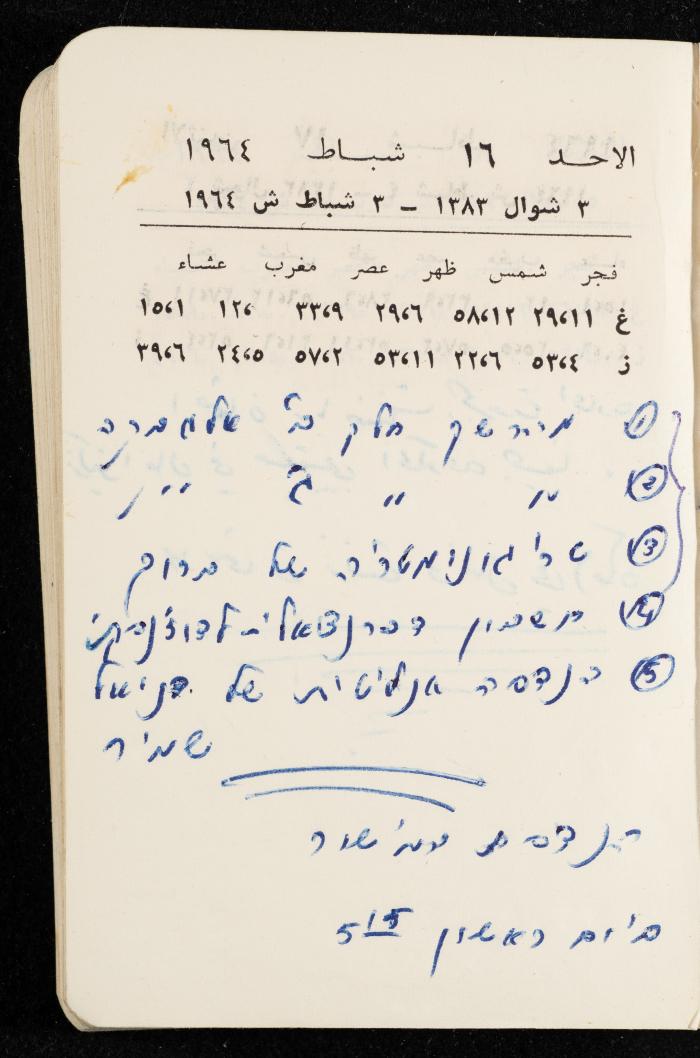 الاحد ١٦ شباط ١٩٦٤
٣ شوال ١٣٨٣ – ٣ شباط ش ١٩٦٤
فجر شمس ظهر عصر مغرب عشاء
غ ٢٩،١١ ٥٨،١٢ ٢٩،٦ ٣٣،٩ ١٢، ١٥،١
ز ٥٣،٤ ٢٢،٦ ٥٣،١١ ٥٧،٢ ٢٤،٥ ٣٩،٦
① חלק ב' אלגברה
② " " ג' " "
③ טריגונומטריה של ברוך
④ חשבון
⑤ הנדסה אנליטית של דניאל
שמיר
הנדסת המישור
ביום ראשון 5 15